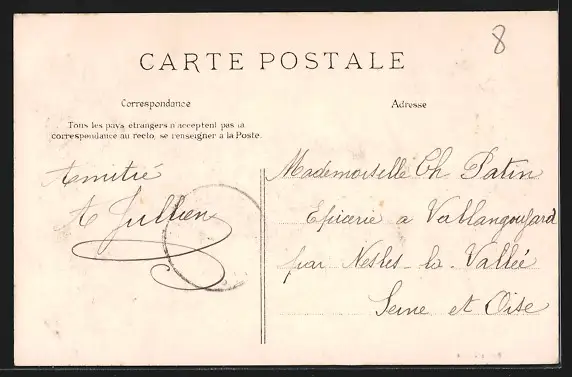 8
CARTE POSTALE
Correspondance
Adresse
Tous les pays étrangers n'acceptent pas la
correspondance au recto, se renseigner à la Poste.
Amitié
A Jullien
Mademoiselle Ch Patin
Epicerie a Vallangoujard
par Nesles-la-Vallée
Seine et Oise